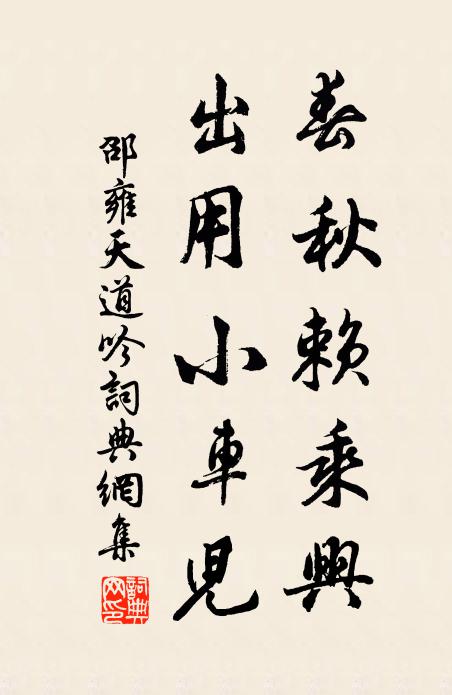 春秋賴乘興
出用小車兒
邵雍天道吟詞典網集
詞典
网印